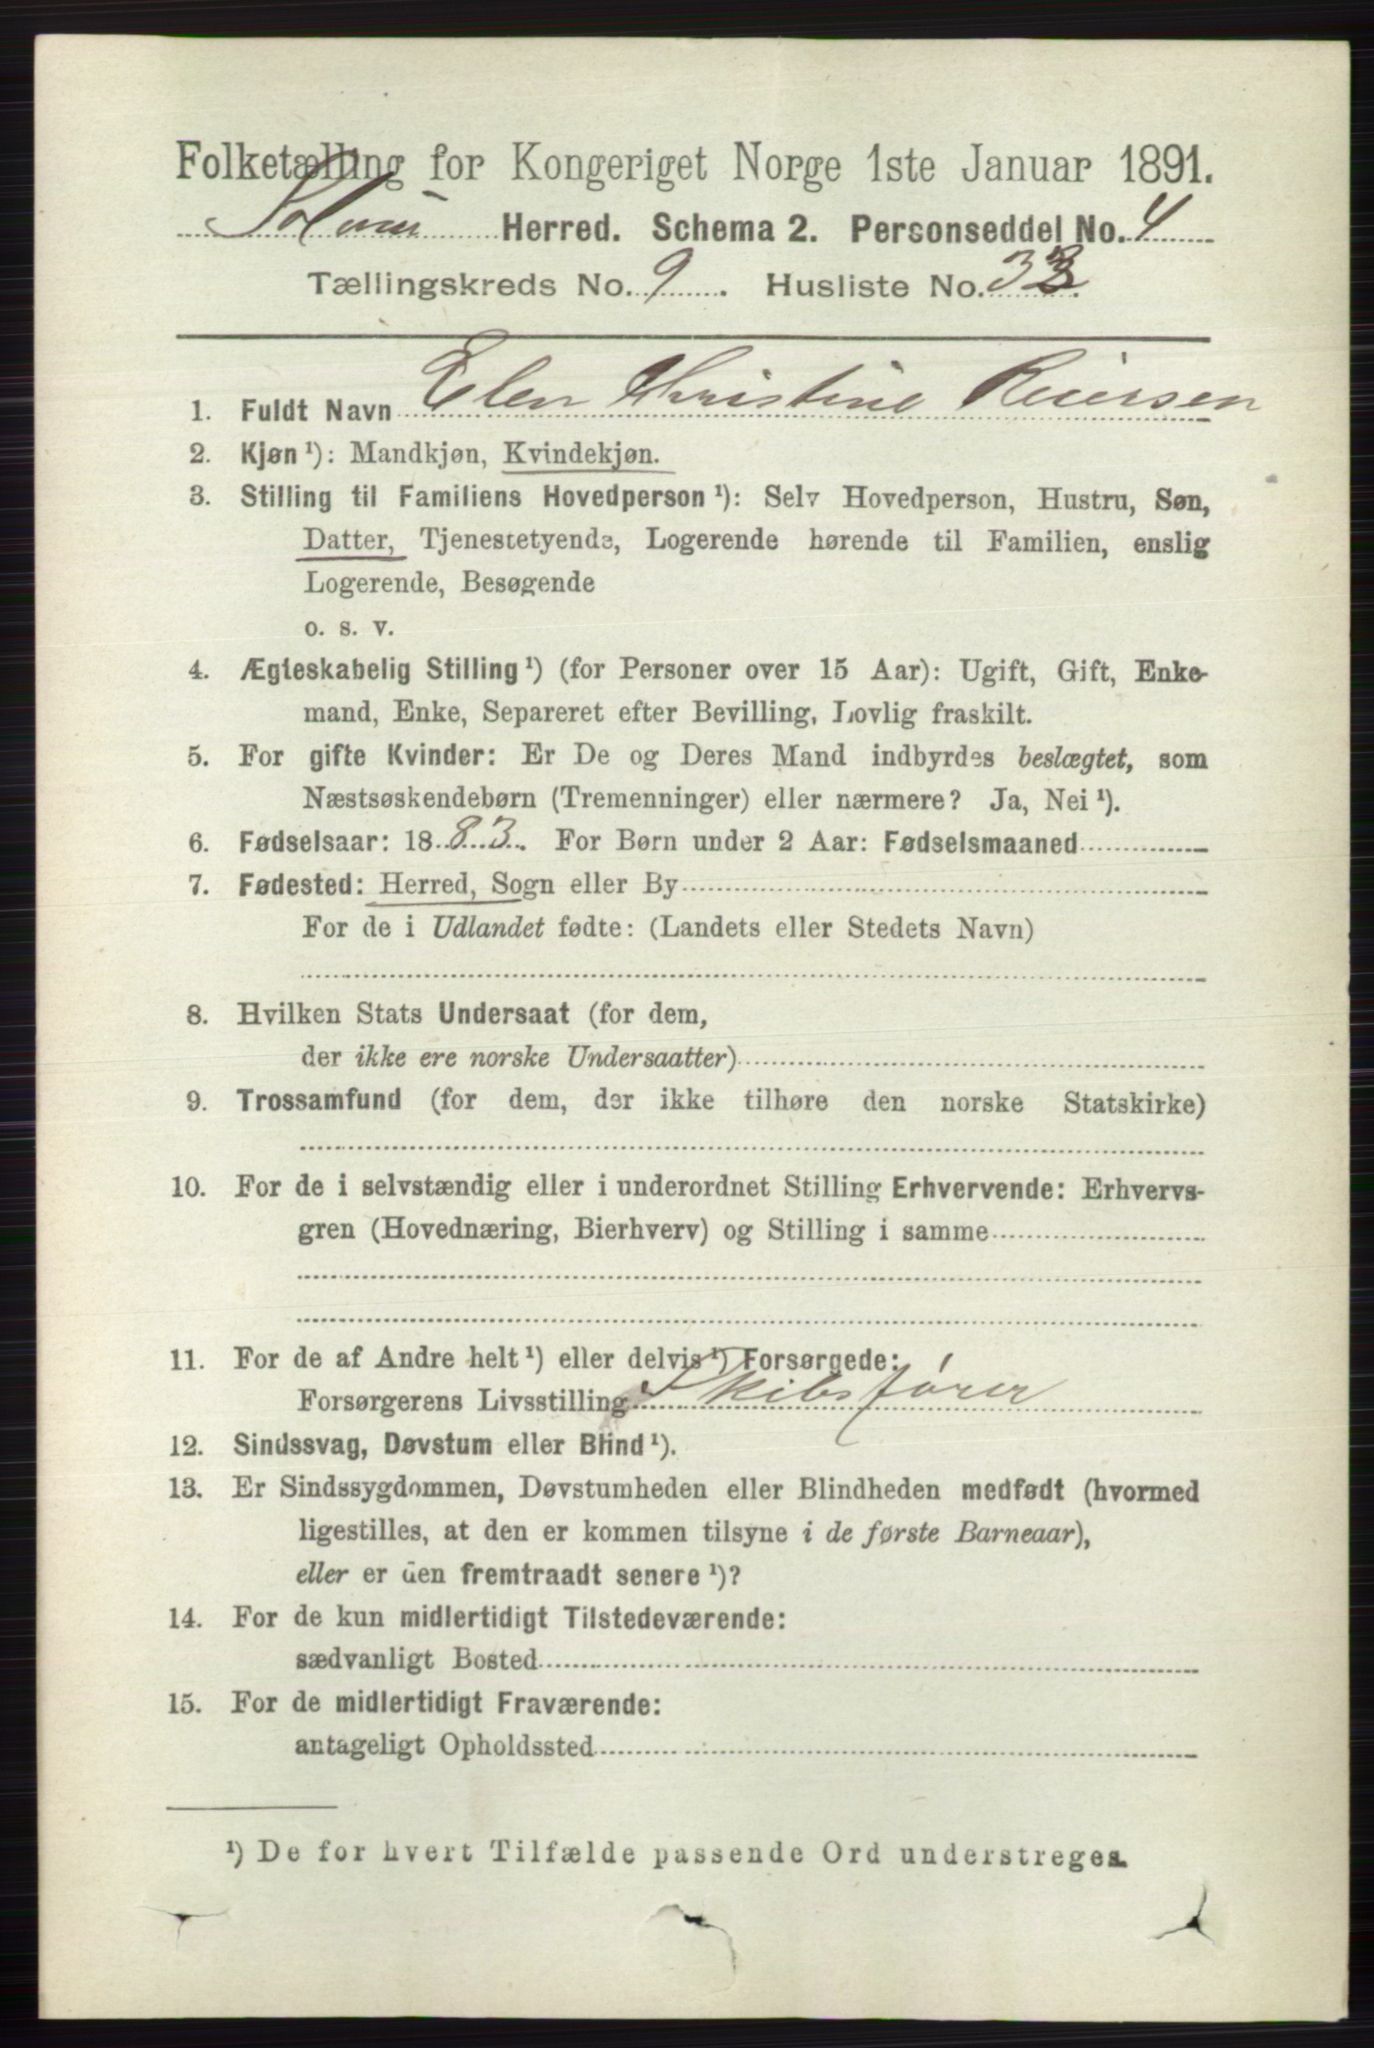 Folketælling for Kongeriget Norge 1ste Januar 1891.
Solum Herred. Schema 2. Personseddel No. 4
Tællingskreds No. 9. Husliste No. 33.
1. Fuldt Navn Elen Christine Reiersen
2. Kjøn ¹): Mandkjøn, Kvindekjøn.
3. Stilling til Familiens Hovedperson ¹): Selv Hovedperson, Hustru, Søn,
Datter, Tjenestetyende, Logerende hørende til Familien, enslig
Logerende, Besøgende
o. s. v.
4. Ægteskabelig Stilling ¹) (for Personer over 15 Aar): Ugift, Gift, Enke-
mand, Enke, Separeret efter Bevilling, Lovlig fraskilt.
5. For gifte Kvinder: Er De og Deres Mand indbyrdes beslægtet, som
Næstsøskendebørn (Tremenninger) eller nærmere? Ja, Nei ¹).
6. Fødselsaar: 1883. For Børn under 2 Aar: Fødselsmaaned
7. Fødested: Herred, Sogn eller By
For de i Udlandet fødte: (Landets eller Stedets Navn)
8. Hvilken Stats Undersaat (for dem,
der ikke ere norske Undersaatter)
9. Trossamfund (for dem, der ikke tilhøre den norske Statskirke)
10. For de i selvstændig eller i underordnet Stilling Erhvervende: Erhvervs-
gren (Hovednæring, Bierhverv) og Stilling i samme
11. For de af Andre helt ¹) eller delvis ¹) Forsørgede:
Forsørgerens Livsstilling Skibsfører
12. Sindssvag, Døvstum eller Blind ¹).
13. Er Sindssygdommen, Døvstumheden eller Blindheden medfødt (hvormed
ligestilles, at den er kommen tilsyne i de første Barneaar),
eller er den fremtraadt senere ¹)?
14. For de kun midlertidigt Tilstedeværende:
sædvanligt Bosted
15. For de midlertidigt Fraværende:
antageligt Opholdssted
¹) De for hvert Tilfælde passende Ord understreges.